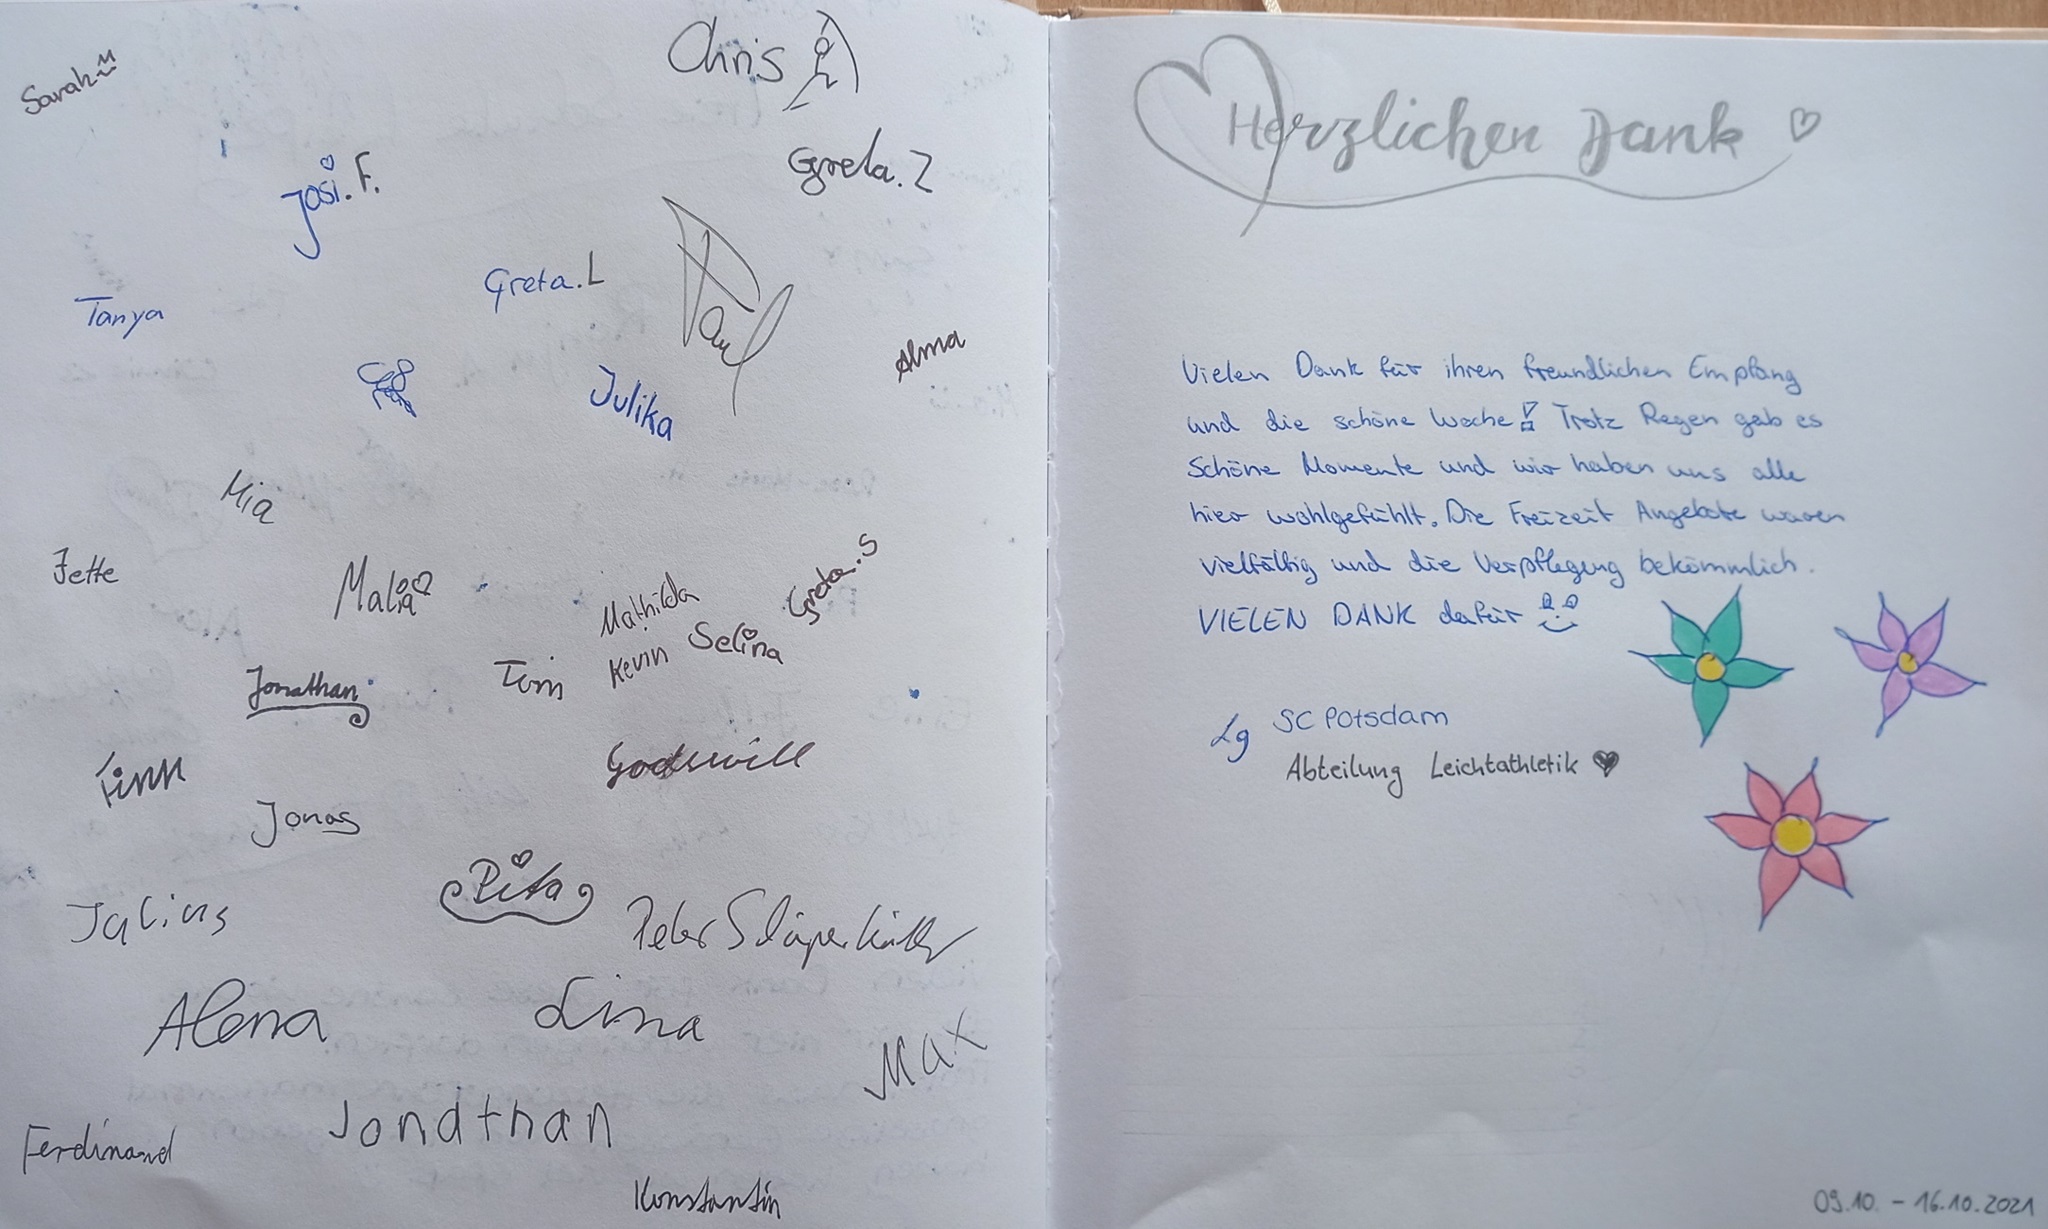 Sarah
Chris
Josi. F.
Greta. Z
Tanya
Greta. L
Paul
Alma
Julika
Mia
Jette
Malia
Mathilda
Greta. S
Kevin
Selina
Jonathan
Tim
Finn
Godswill
Jonas
Pita
Julius
Peter
Alena
Lina
Max
Ferdinand
Jonathan
Konstantin
Herzlichen Dank
Vielen Dank für ihren freundlichen Empfang
und die schöne Woche! Trotz Regen gab es
Schöne Momente und wir haben uns alle
hier wohlgefühlt. Die Freizeit Angebote waren
vielfältig und die Verpflegung bekömmlich.
VIELEN DANK dafür
Lg SC Potsdam
Abteilung Leichtathletik
09.10. - 16.10.2021